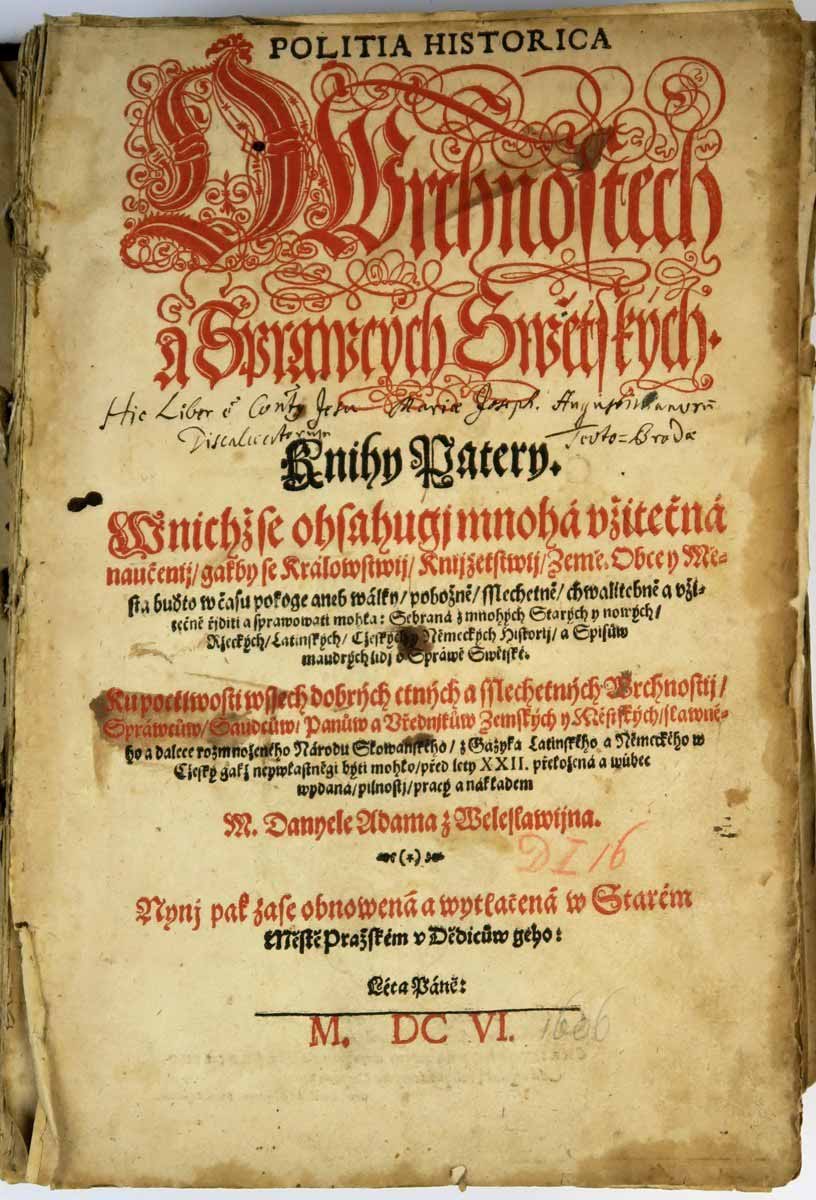 POLITIA HISTORICA
O Wrchnostech
a Spráwcých Swětských.
Hic Liber Jesu Mariæ Joseph.
Knihy Patery.
W nichž se obsahugj mnohá vžitečná
naučenij/ gakby se Králowstwij/ Knijžetstwij/ Země. Obce y Mě-
sta buďto w času pokoge aneb wálky/ pobožně/ sslechetně/ chwalitebně a vži-
tečně říditi a sprawowati mohla: Sebraná z mnohých Starých y nowých/
Ržeckých/ Latinských/ Cžeských y Německých Historij/ a Spisůw
maudrých lidj o Spráwě Swětské.
Ku poctiwosti wssech dobrých ctných a sslechetných Wrchnostij/
Spráwcůw/ Saudcůw/ Panůw a Vřednjkůw Zemských y Městských/ slawné-
ho a dalece rozmnoženého Národu Slowanského/ z Gazyka Latinského a Německého w
Cžeský gakž neywlastněgi býti mohlo/ před lety XXII. přeložená a wůbec
wydaná/ pilnostj/ pracý a nákladem
M. Danyele Adama z Weleslawijna.
(*)
D I 16
Nynj pak zase obnowená a wytlačená w Starém
Městě Pražském v Dědicůw geho:
Léta Páně:
M. DC VI. 1606